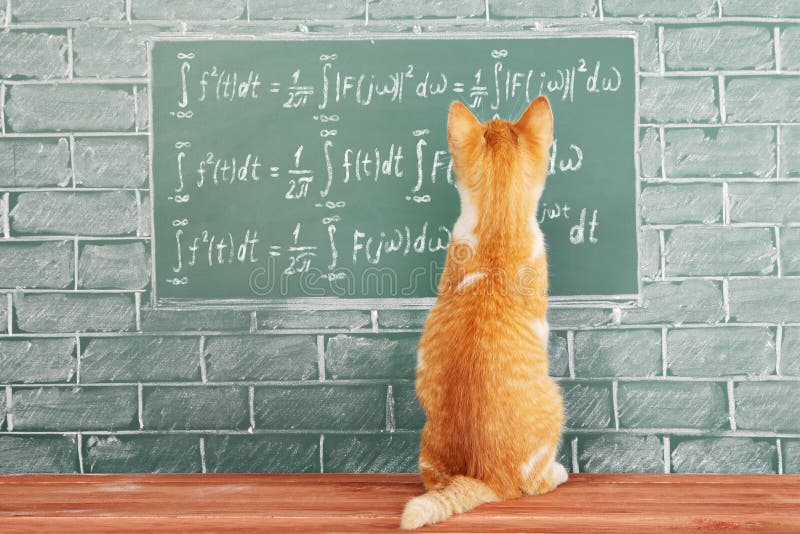 ∞ ∫ -∞ f²(t)dt = 1/2π ∞ ∫ -∞ |F(jω)|² dω = 1/π ∞ ∫ |F(jω)|² dω
∞ ∫ -∞ f²(t)dt = 1/2π ∞ ∫ -∞ f(t)dt ∞ ∫ -∞ F( ω
∞ ∫ -∞ f²(t)dt = 1/2π ∞ ∫ -∞ F(jω)dω jωt dt
dreamstime